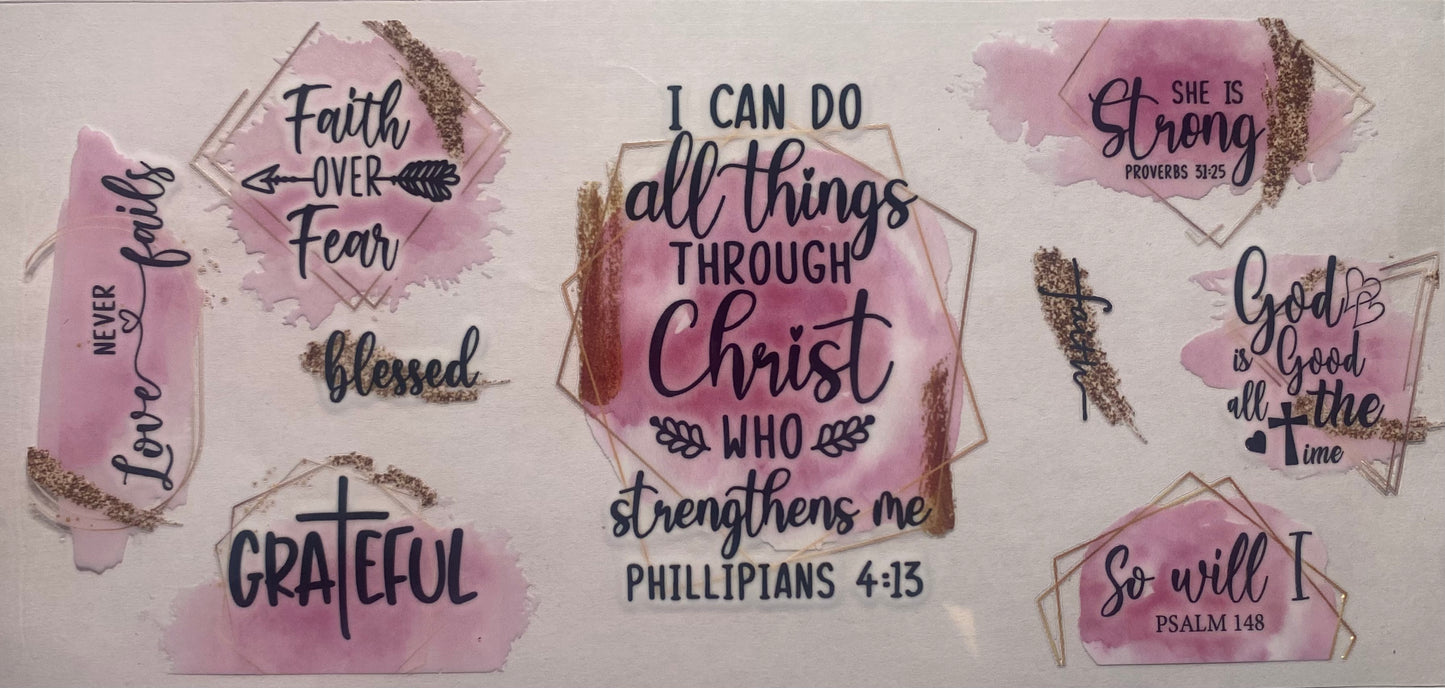 Love NEVER fails
Faith
OVER
Fear
blessed
GRATEFUL
I CAN DO
all things
THROUGH
Christ
WHO
strengthens me
PHILLIPIANS 4:13
SHE IS
Strong
PROVERBS 31:25
faith
God
is Good
all the
time
So will I
PSALM 148